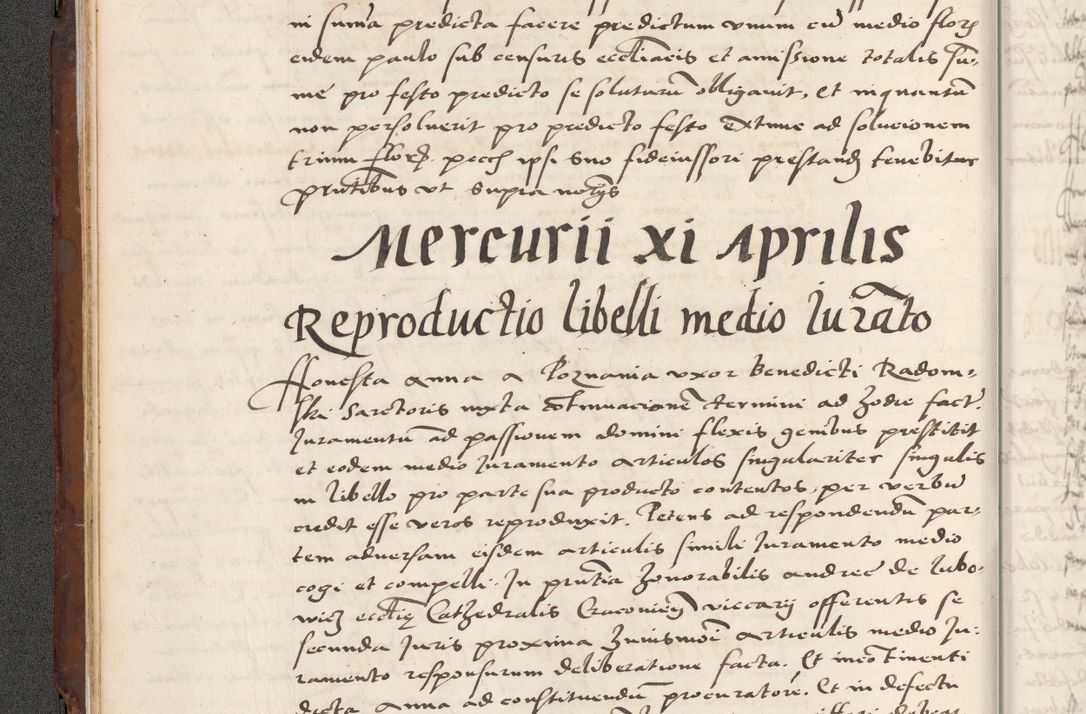 in suma predicta facere predictum unum cu medio flor
eidem paulo sub censuris eccliacis et amissione totalis su-
me pro festo predicto se soluturu obligavit. Et inquantu
non persolverit pro predicto festo extunc ad solucionem
trium flor. pecch ipsi suo fideiussori prestand tenebitur
pntibus ut supra notijs
Mercurii xi Aprilis
Reproductio libelli medio Iurato
Honesta anna a Poznania uxor Benedicti Radom-
ski Sartoris iuxta cotinuacione termini ad hodie fact.
Iuramentu ad passionem domini flexis genibus prestitit
et eodem medio Iuramento articulos singulariter singulis
in libello pro parte sua producto contentos, per verbu
credit esse veros reproduxit. Petens ad respondendu par-
tem adversam eisdem articulis simili Iuramento medio
cogi et compelli. In pntia honorabilis andree de lubo-
wicz ecclie Cathedralis Cracovien viccarij offerentis se
secunda Iuris proxima huiusmoi articulis medio Iu-
ramento responsurum deliberatione facta. Et incotinenti
dicta Anna ad constituendu procuratore. Et in defectu